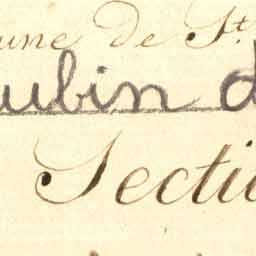 une de St.
ubin d
Secti